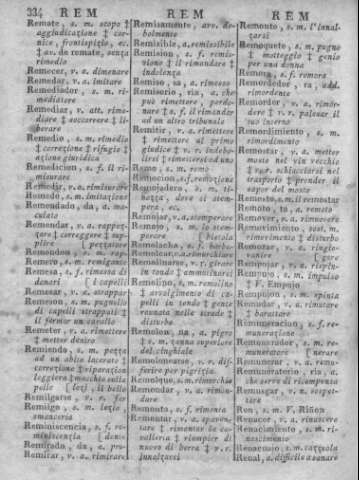 334 REM
REM
REM
Remate, s. m. scopo ‡
aggiudicazione ‡ cor-
nice, frontispizio, ec.
‡ av. de remate, senza
rimedio
Remecer, v. a. dimenare
Remedar, v. a. imitare
Remediador, s. m. ri-
mediatore
Remediar, v. att. rime-
diare ‡ soccorrere ‡ li-
berare
Remedio, s. m. rimedio
‡ correzione ‡ rifugio ‡
azione giuridica
Remedicion, s. f. il ri-
misurare
Remedir, v. a. rimisurare
Remedo, s. m. imitazione
Remendado, da, a. ma-
culato
Remendar, v. a. rappez-
zare ‡ correggere ‡ sup-
plire [pezzatore
Remendon, s. m. rap-
Remero, s. m. remigante
Remesa, s. f. rimessa di
denari [i capelli
Remesar, v. a. strappar
Remeson, s. m. pugnello
di capelli strappati ‡
il fermar un cavallo
Remeter, v. a. rimettere
‡ metter dentro
Remiendo, s. m. pezza
ad un abito lacerato ‡
correzione ‡ riparazione
leggiera ‡ macchie sulla
pelle [led] il belle
Remilgarse, v. r. far
Remilgo, s. m. lezio,
smanceria
Reminiscencia, s. f. re-
miniscenza [deno-
Remirado, da, a. pru-
Remirar, v. a. rimirare
Remisamente, avv. de-
bolmente
Remisible, a. remissibile
Remision, s. f. remis-
sione ‡ il rimandare ‡
indolenza
Remiso, sa, a. rimesso
Remisorio, ria, a. che
può rimettere, perdo-
nare ‡ s. f. il rimandar
ad un altro tribunale
Remitir, v. a. rimettere
‡ rimettere al primo
giudice ‡ v. r. indebo-
lirsi ‡ rimettersi ad uno
Remo, s. m. remo
Remocion, s. f. remozione
Remojadero, s. m. ti-
nozza, dove si stem-
pera, ec.
Remojar, v. a. stemperare
Remojo, s. m. lo stem-
perare [bietola
Remolacha, s. f. barba-
Remolcar, v. a. rimorchiare
Remolinarse, v. r. girare
in tondo ‡ ammutinarsi
Remolino, s. m. remolino
‡ avvolgimento di ca-
pelli in tondo ‡ gente
raunata nelle strade ‡
disturbo
Remolon, na, a. pigro
‡ s. m. zanna superiore
del cinghiale
Remolonearse, v. r. dif-
ferire per pigrizia
Remolque, s. m. rimorchio
Remondar, v. a. rimon-
dare
Remonta, s. f. rimonta
Remontar, v. a. spaven-
tare ‡ rimontar la ca-
valleria ‡ riempier di
nuovo di borra ‡ v. r.
innalzarsi
Remonto, s. m. l'innal-
zarsi
Remoquete, s. m. pugno
‡ motteggio ‡ genio
per una donna
Remora, s. f. remora
Remordedor, ra, add.
rimordente
Remorder, v. a. rimor-
dere ‡ v. r. palesar il
suo interno
Remordimiento, s. m.
rimordimento
Remostar, v. a. metter
mosto nel vin vecchio
‡ spr. schiacciarsi nel
trasporto ‡ prender il
sapor del mosto
Remosto, s. m. il remostar
Remoto, ta, a. remoto
Remover, v. a. rimuovere
Removimiento, sost. m.
rimovimento ‡ disturbo
Remozar, v. a. ringio-
vanire [gere
Rempujar, v. a. rispin-
Rempujo, s. m. impulso
‡ V. Empujo
Rempujon, s. m. spinta
Remudar, v. a. rimutare
‡ barattare
Remuneracion, s. f. re-
munerazione
Remunerador, s. m. re-
muneratore
Remunerar, v. a. remu-
Remuneratorio, ria, a.
che serve di ricompensa
Remusgar, v. n. sospet-
tare
Ren, s. m. V. Riñon
Renacer, v. a. rinascere
Renacimiento, s. m. ri-
nascimento
Renacuajo, s. m. cazzuola
Renal, a.